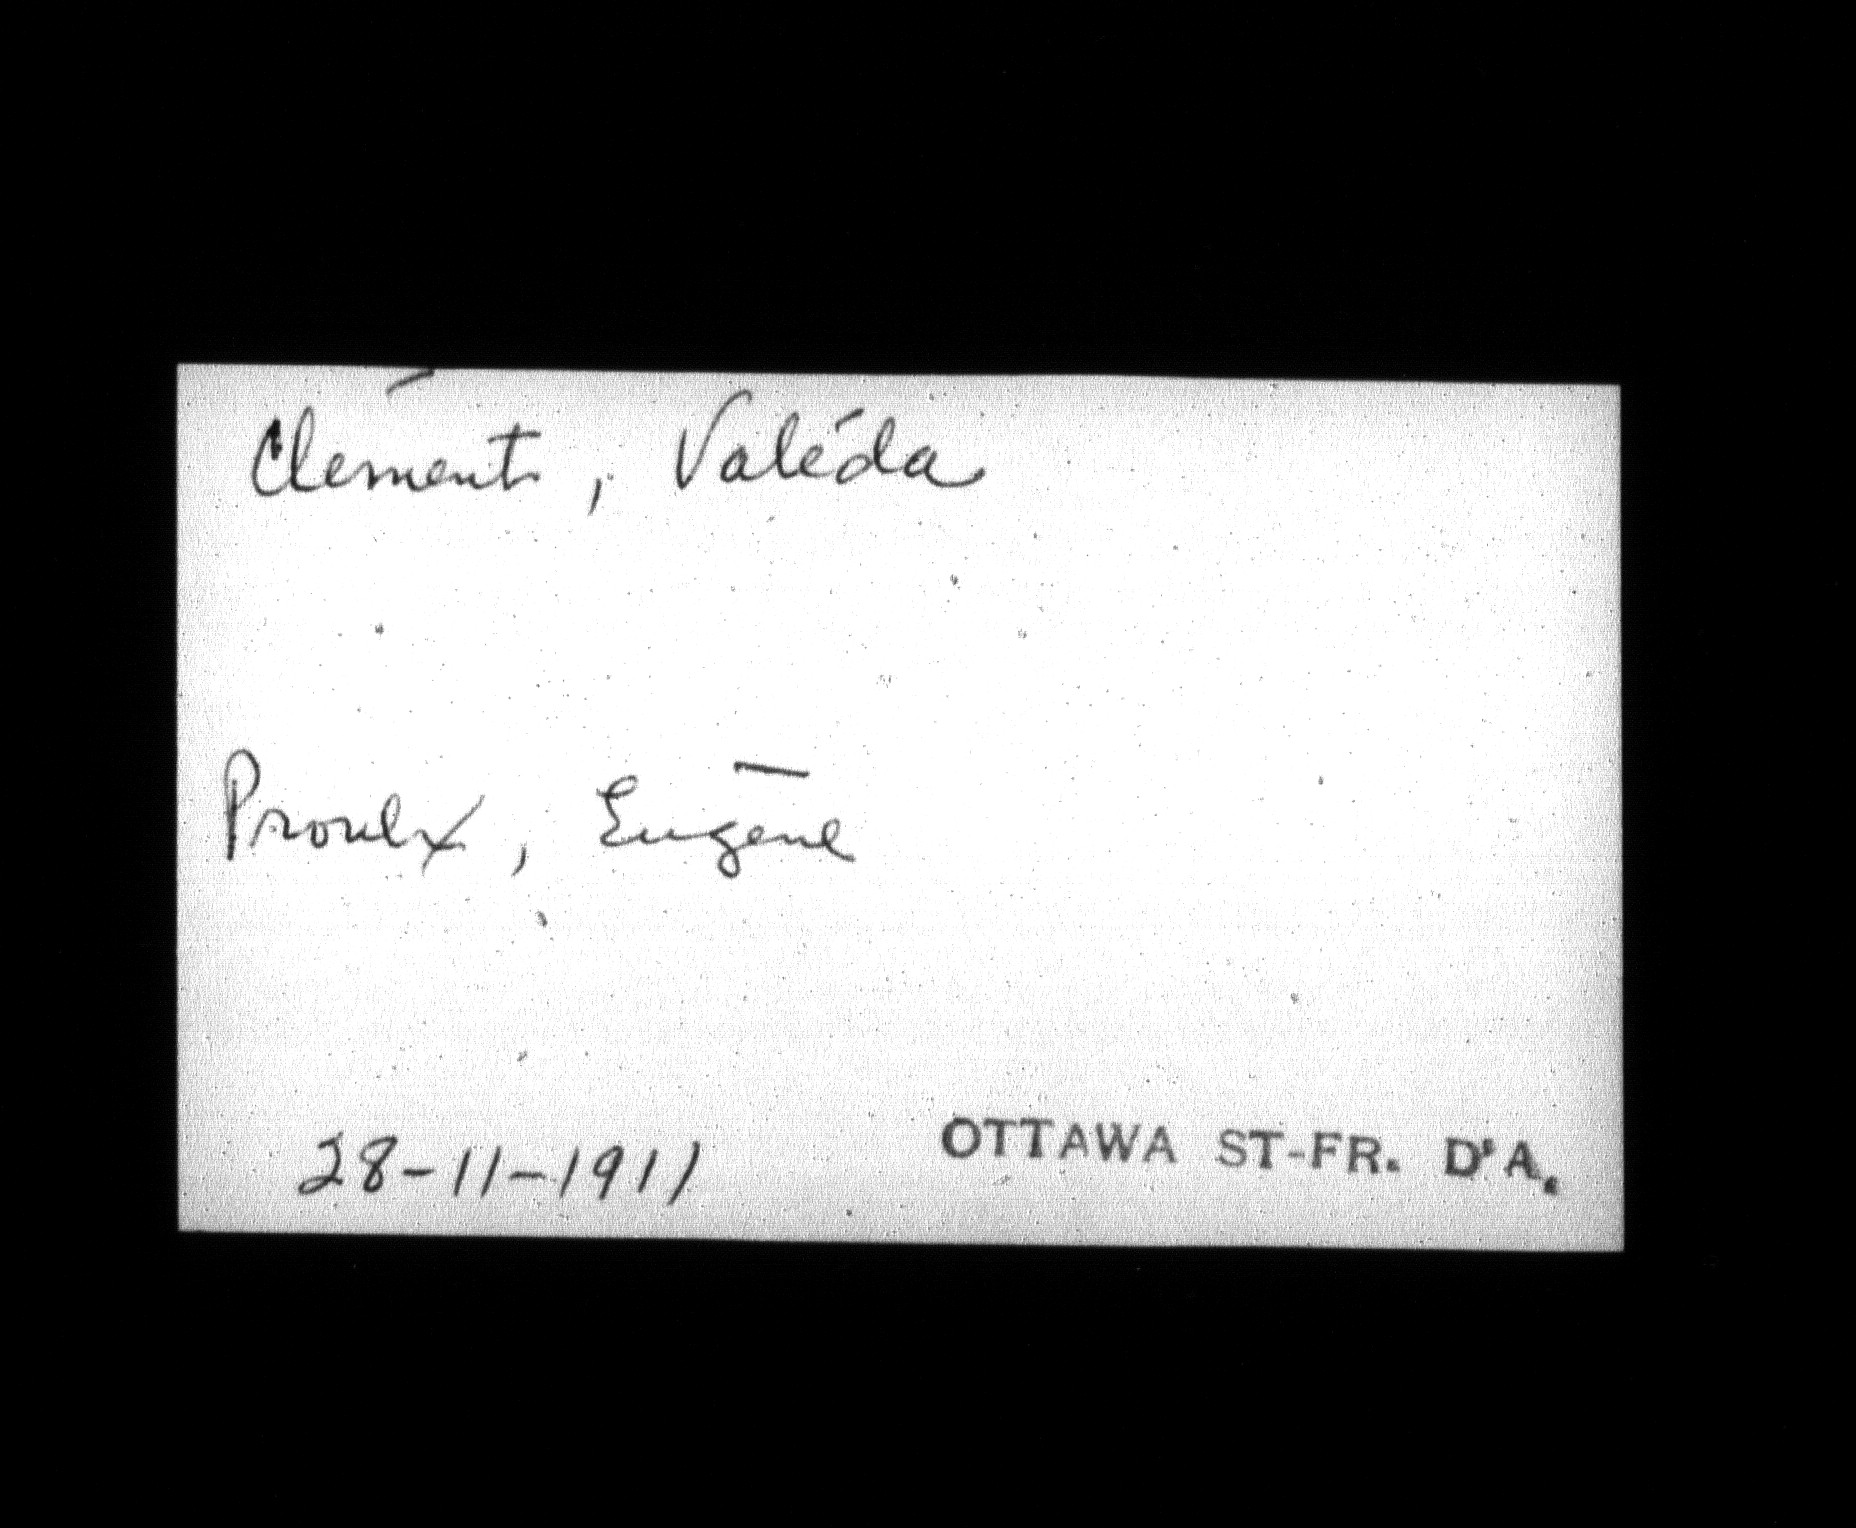 Clément, Valéda
Proulx, Eugène
28-11-1911
OTTAWA ST-FR. D'A.